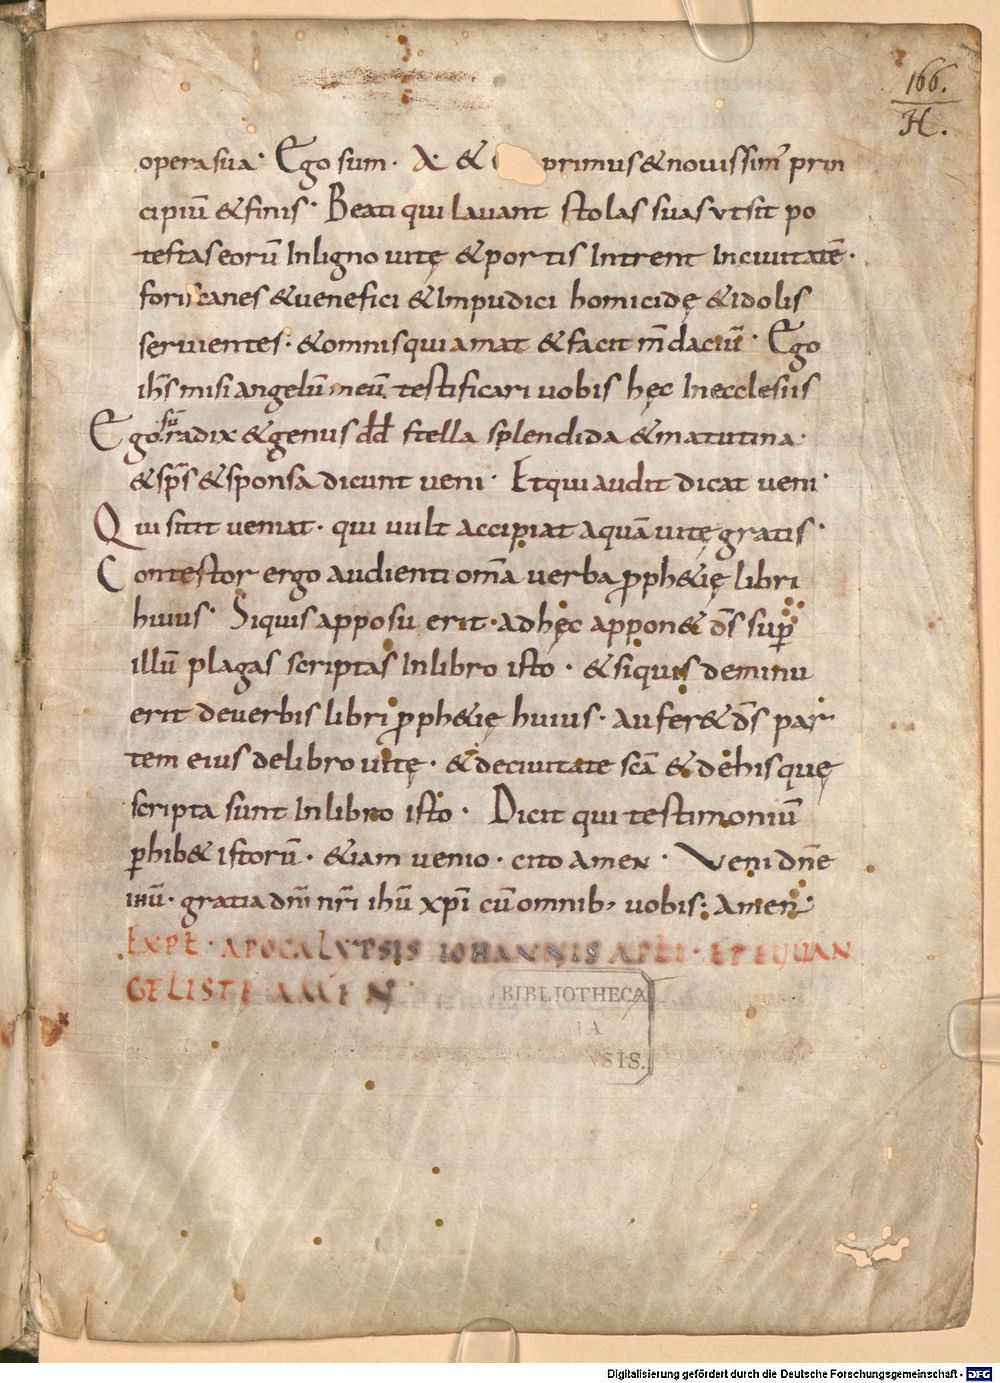 166.
H.
opera sua· Ego sum· A· & primus & nouissim' prin
cipiū & finis· Beati qui lauant stolas suas vt sit po
testas eorū In ligno uitę & portis Intrent In ciuitatē·
foris canes & uenefici & Impudici homicidę & idolis
seruientes· & omnis qui amat & facit m̄daciū· Ego
ih̄s misi angelū meū testificari uobis hęc In ecclesiis
Ego sū radix & genus dd̄ stella splendida & matutina·
& sp̄s & sponsa dicunt ueni· Et qui audit dicat ueni·
Qui sitit ueniat· qui uult accipiat aquā uitę gratis·
Contestor ergo audienti om̄a uerba ꝓph&ię libri
huius· Siquis apposu erit· ad hęc appon& d̄s suꝑ
illū plagas scriptas In libro isto· & siquis deminu
erit de uerbis libri ꝓph&ię huius· aufer& d̄s par
tem eius de libro uitę· & de ciuitate scā & de his quę
scripta sunt In libro isto· Dicit qui testimoniū
ꝑhib& istorū· &iam uenio· cito amen· Veni dn̄e
ihū· gratia dn̄i nr̄i ihū xp̄i cū omnib; uobis· Amen·
EXPĒ· APOCALYPSIS IOHANNIS APLI· ET EQUAN
GELISTĘ AMEN·
BIBLIOTHECA
IA
NSIS.
Digitalisierung gefördert durch die Deutsche Forschungsgemeinschaft - DFG